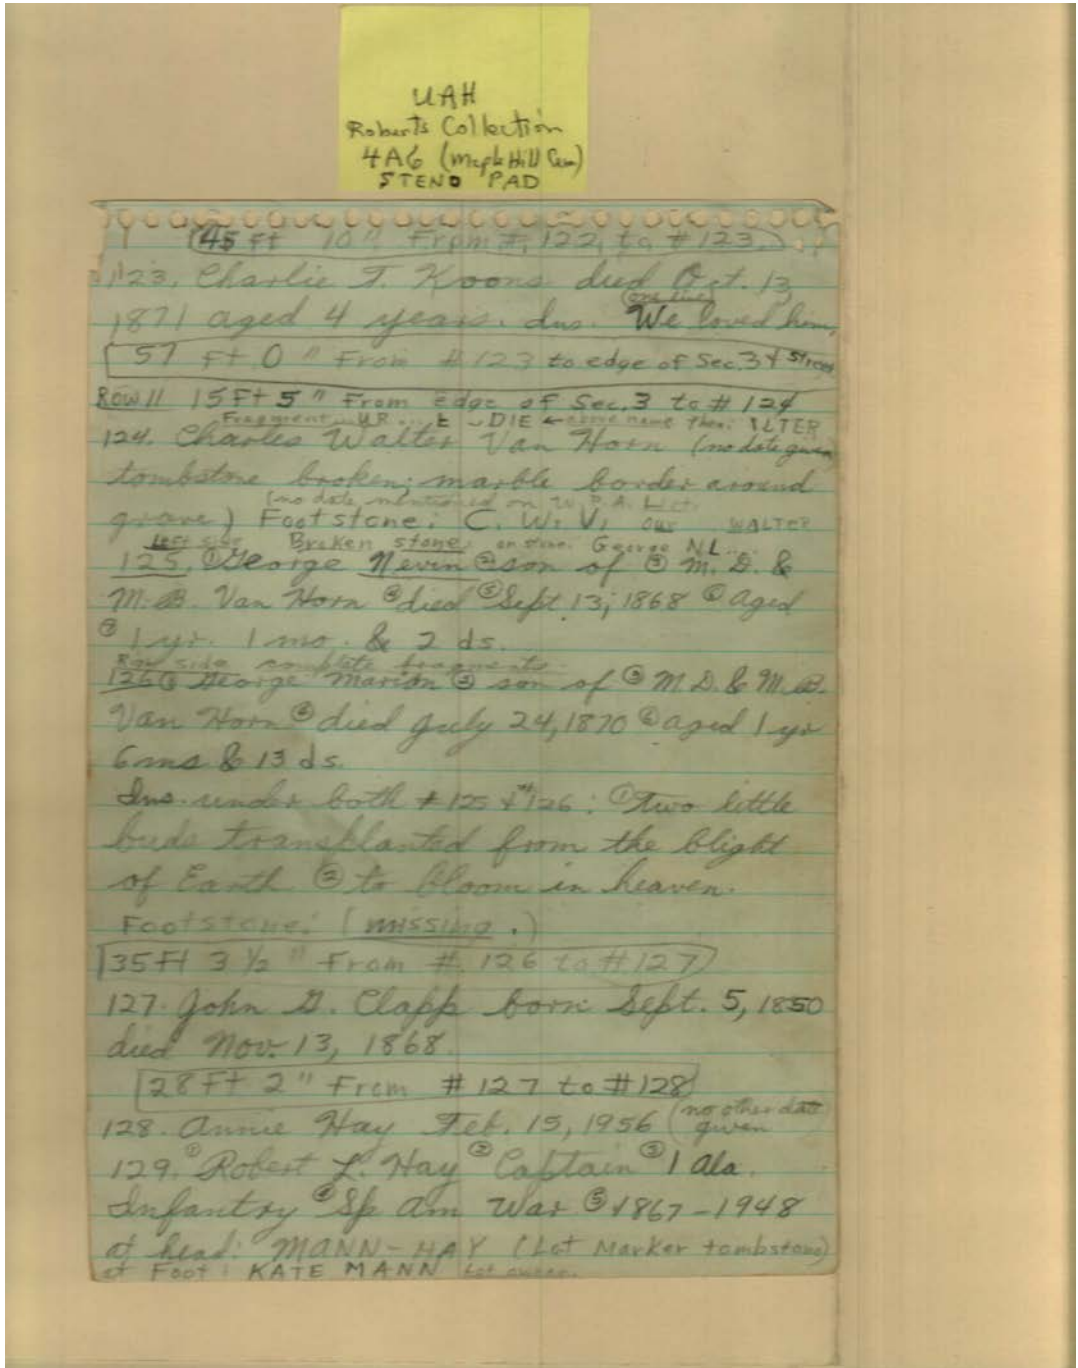 UAH
Roberts Collection
4A6 (Maple Hill Cem)
STENO PAD
45 ft 10" From # 122, to # 123.
123. Charlie T. Koons died Oct. 13,
(one line)
1871 aged 4 years. Ins. We loved him,
57 Ft. 0" From # 123 to edge of Sec. 3 & Street
ROW 11 15 Ft 5" From edge of Sec. 3 to # 124
Fragment UR... E ~DIE ← above name then: LTER
124. Charles Walter Van Horn (no date given)
tombstone broken; marble border around
(no date mentioned on W.P.A. List.
grave) Footstone: C. W. V. our WALTER
Left side Broken stone: on stone: George NL...
125. ① George Nevin ② son of ③ M. D. &
M. B. Van Horn ④ died ⑤ Sept 13, 1868 ⑥ aged
⑦ 1 yr. 1 mo. & 2 ds.
side complete fragments
126 ① George Marion ② son of ③ M. D. & M. B.
Van Horn ④ died July 24, 1870 ⑥ aged 1 yr
6 ms & 13 ds.
Ins. under both # 125 & # 126: ① Two little
buds transplanted from the blight
of Earth ② to bloom in heaven.
Footstone: (missing.)
35 Ft 3 1/2" From # 126 to # 127
127. John G. Clapp born Sept. 5, 1850
died Nov. 13, 1868.
28 Ft 2" From # 127 to # 128
128. Annie Hay Feb. 15, 1956 (no other date
given
129. ① Robert L. Hay ② Captain ③ 1 Ala.
Infantry ④ Sp Am War ⑤ 1867-1948
at head: MANN-HAY (Lot Marker tombstone)
at Foot: KATE MANN Lot owner.